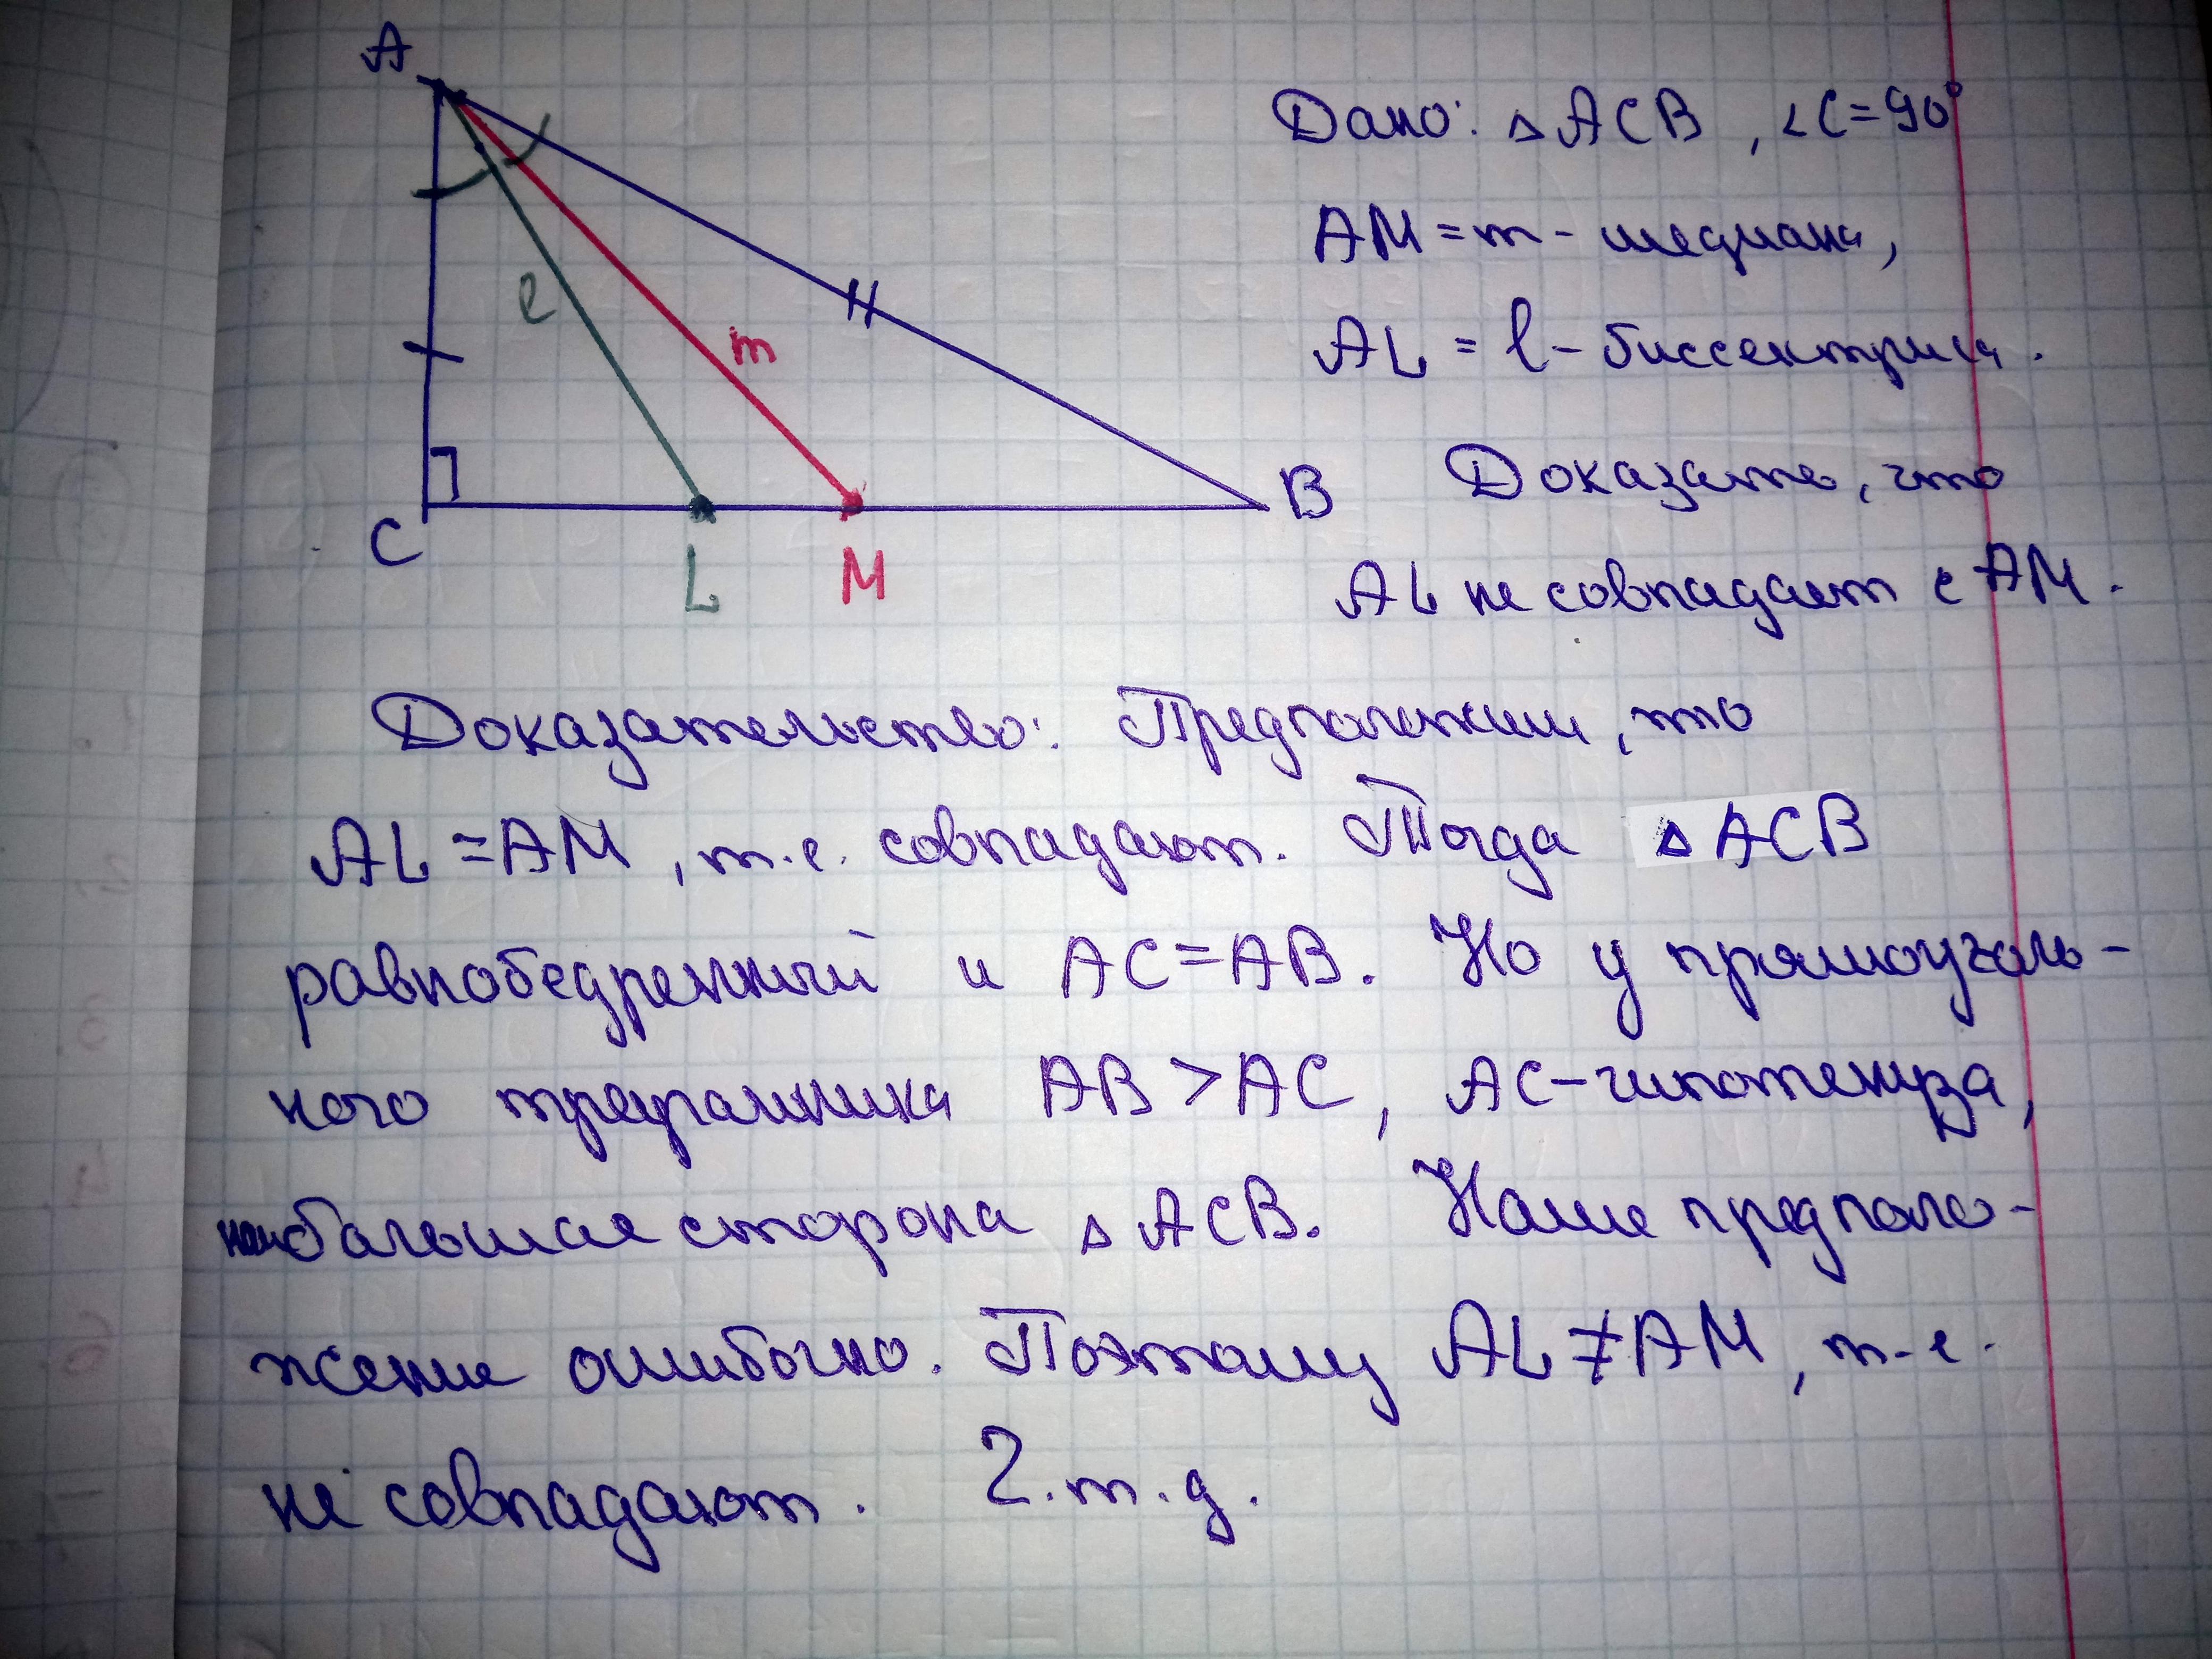 A
Дано: △ACB, ∠C=90°
AM = m - медиана,
AL = l - биссектриса.
l
m
C
L
M
B
Доказать, что
AL не совпадает с AM.
Доказательство: Предположим, что
AL = AM, т.е. совпадают. Тогда △ACB
равнобедренный и AC=AB. Но у прямоуголь-
ного треугольника AB > AC, AC-гипотенуза,
наибольшая сторона △ACB. Наше предполо-
жение ошибочно. Поэтому AL ≠ AM, т.е.
не совпадают. Ч.т.д.